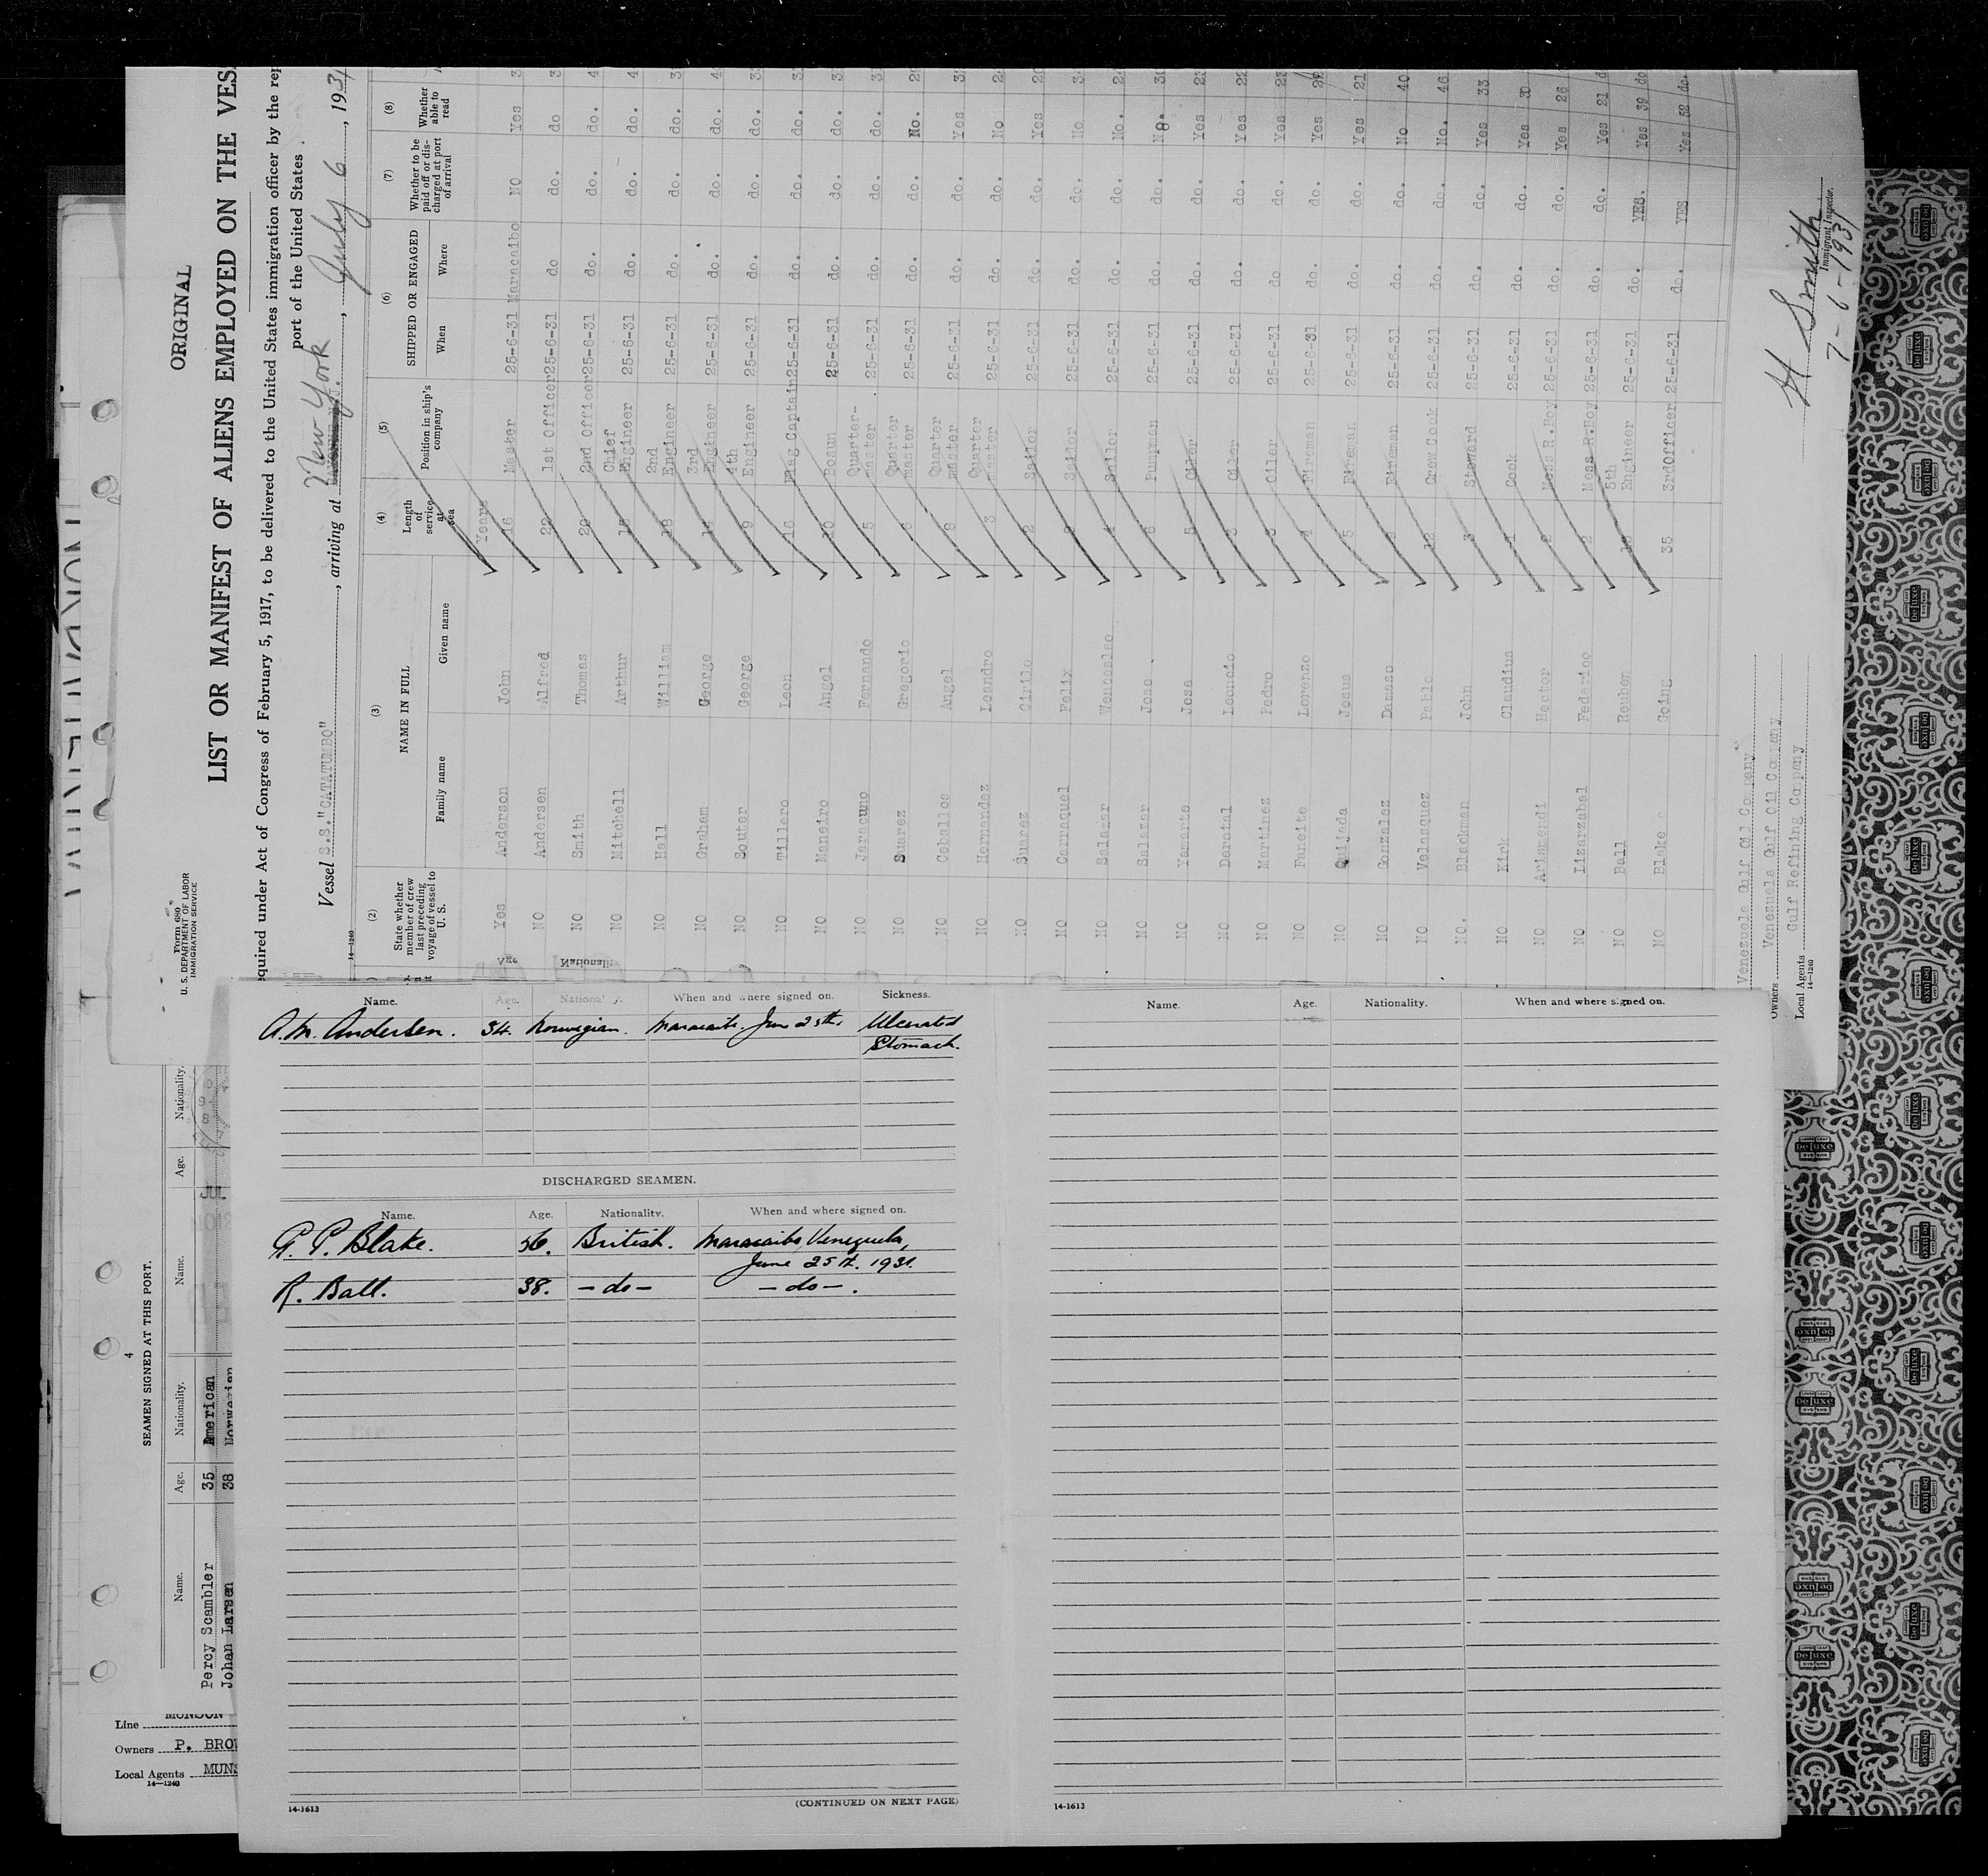 ORIGINAL
Form 680
U. S. DEPARTMENT OF LABOR
IMMIGRATION SERVICE
LIST OR MANIFEST OF ALIENS EMPLOYED ON THE VES
equired under Act of Congress of February 5, 1917, to be delivered to the United States immigration officer by the rep
port of the United States
Vessel S.S."CATATUMBO", arriving at New York, July 6, 1931
14-1240
(2) (3) (4) (5) (6) (7) (8)
State whether member of crew last preceding voyage of vessel to U. S.
NAME IN FULL
Family name Given name
Length of service at sea
Position in ship's company
SHIPPED OR ENGAGED
When Where
Whether to be paid off or discharged at port of arrival
Whether able to read
Years
Yes Anderson John 16 Master 25-6-31 Maracaibo NO Yes
NO Andersen Alfred 22 1st Officer 25-6-31 do do. do
NO Smith Thomas 20 2nd Officer 25-6-31 do. do. do.
NO Mitchell Arthur 15 Chief Engineer 25-6-31 do. do. do.
NO Hall William 18 2nd Engineer 25-6-31 do. do. do.
NO Graham George 3rd Engineer 25-6-31 do. do. do.
NO Souter George 4th Engineer 25-6-31 do. do. do.
NO Tillero Leon 16 Flag Captain 25-6-31 do. do. do.
NO Maneiro Angel 10 Bosun 25-6-31 do. do. do.
NO Jaracuno Fernando 15 Quarter-master 25-6-31 do. do. do.
NO Suarez Gregorio Quarter master 25-6-31 do. do. No.
NO Ceballos Angel 8 Quarter master 25-6-31 do. do. Yes
NO Hernandez Leandro 3 Quarter master 25-6-31 do. do. No
NO Suarez Cirilo 2 Sailor 25-6-31 do. do. Yes
NO Carraquel Felix Sailor 25-6-31 do. do. No
NO Salazar Wenceslao 4 Sailor 25-6-31 do. do. No.
NO Salazar Jose 6 Pumpman 25-6-31 do. do. No.
NO Yamarte Jose 5 Oiler 25-6-31 do. do. Yes
NO Derotal Leoncio Oiler 25-6-31 do. do. Yes
NO Martinez Pedro Oiler 25-6-31 do do. Yes
NO Faneite Lorenzo 4 Fireman 25-6-31 do. do. Yes
NO Quijada Jesus 5 Fireman 25-6-31 do. do. Yes
NO Gonzalez Damaso Fireman 25-6-31 do. do. No 40
NO Velasquez Pablo 12 Crew Cook 25-6-31 do. do. No. 46
NO. Blackman John 3 Steward 25-6-31 do. do. Yes 33
NO Kirk Claudius Cook 25-6-31 do. do. Yes 30
NO Arismendi Hector Mess R.Boy 25-6-31 do. do. Yes 26
NO Lizazzabal Federico 2 Mess R.Boy 25-6-31 do. do. Yes 21 d
NO Ball Reuben 5th Engineer 25-6-31 do. YES. Yes 39 do
NO Blake Going 35 3rdOfficer 25-6-31 do. YES Yes 52 do.
Venezuela Gulf Oil Company
Owners Venezuela Gulf Oil Company
Local Agents Gulf Refining Company
14-1240
H Smith
Immigrant Inspector.
7-6-1931
Name. Age. Nationality. When and where signed on. Sickness.
A.M. Andersen. 34. Norwegian. Maracaibo. June 25th. Ulcerated
Stomach.
DISCHARGED SEAMEN.
Name. Age. Nationality. When and where signed on.
G. P. Blake. 56. British. Maracaibo, Venezuela,
June 25th. 1931.
R. Ball. 38. -do- -do-.
14-1613
(CONTINUED ON NEXT PAGE)
Name. Age. Nationality. When and where signed on.
14-1613
4
SEAMEN SIGNED AT THIS PORT.
Name. Age. Nationality. Name. Age. Nationality.
Percy Scambler 35 American
Johan Larsen 38 Norwegian
Line MUNSON
Owners P. BROW
Local Agents MUNS
14-1240